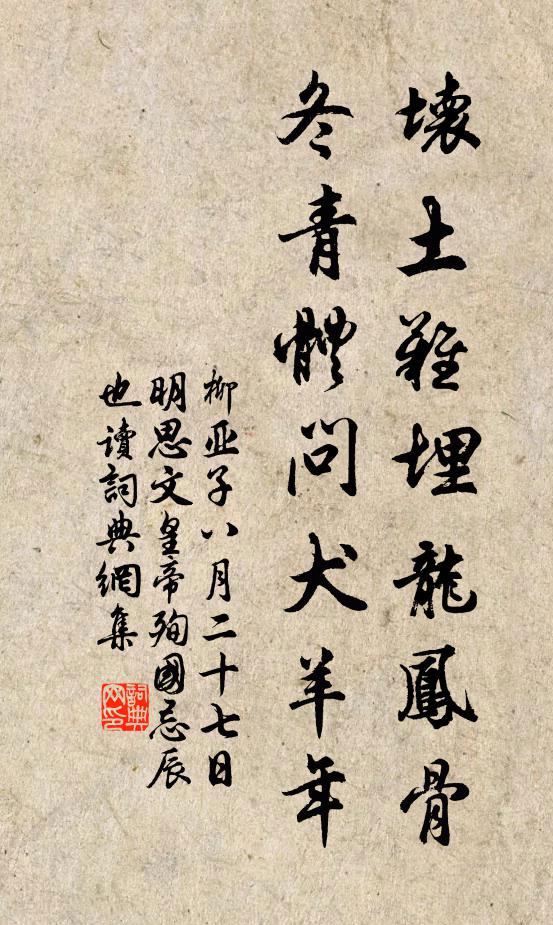 壞土難埋龍鳳骨
冬青體問犬羊年
柳亚子八月二十七日
明思文皇帝殉國忌辰
也讀詞典網集
詞典
网印